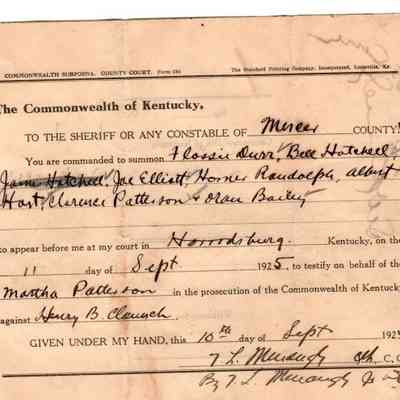 COMMONWEALTH SUBPOENA. COUNTY COURT. Form 130
The Standard Printing Company, Incorporated, Louisville, Ky.
The Commonwealth of Kentucky,
TO THE SHERIFF OR ANY CONSTABLE OF Mercer COUNTY:
You are commanded to summon Flossie Durr, Bell Hatchell,
Jaime Hatchell, Joe Elliott, Homer Randolph, Albert
Hart, Clarence Patterson & Oran Bailey
to appear before me at my court in Harrodsburg. Kentucky, on the
11 day of Sept 1925, to testify on behalf of the
Martha Patterson in the prosecution of the Commonwealth of Kentucky
against Henry B. Claunch
GIVEN UNDER MY HAND, this 10th day of Sept 192
T L Menaugh C. C.
By T L Menaugh Jr